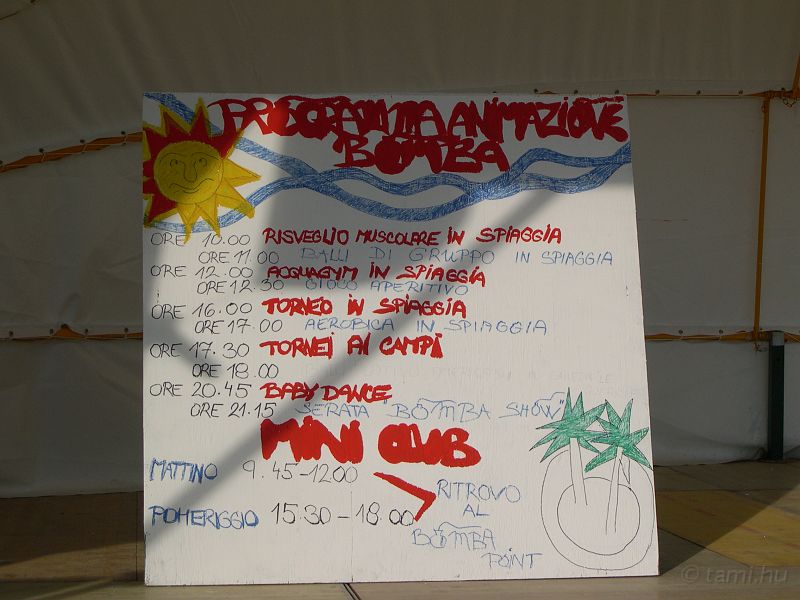 PROGRAMMA ANIMAZIONE
BOMBA
ORE 10.00 RISVEGLIO MUSCOLARE IN SPIAGGIA
ORE 11.00 BALLI DI GRUPPO IN SPIAGGIA
ORE 12.00 ACQUAGYM IN SPIAGGIA
ORE 12.30 GIOCO APERITIVO
ORE 16.00 TORNEO IN SPIAGGIA
ORE 17.00 AEROBICA IN SPIAGGIA
ORE 17.30 TORNEI AI CAMPI
ORE 18.00
ORE 20.45 BABY DANCE
ORE 21.15 SERATA "BOMBA SHOW"
MINI CLUB
MATTINO 9.45-12.00
POMERIGGIO 15.30-18.00
RITROVO
AL
BOMBA
POINT
© tami.hu